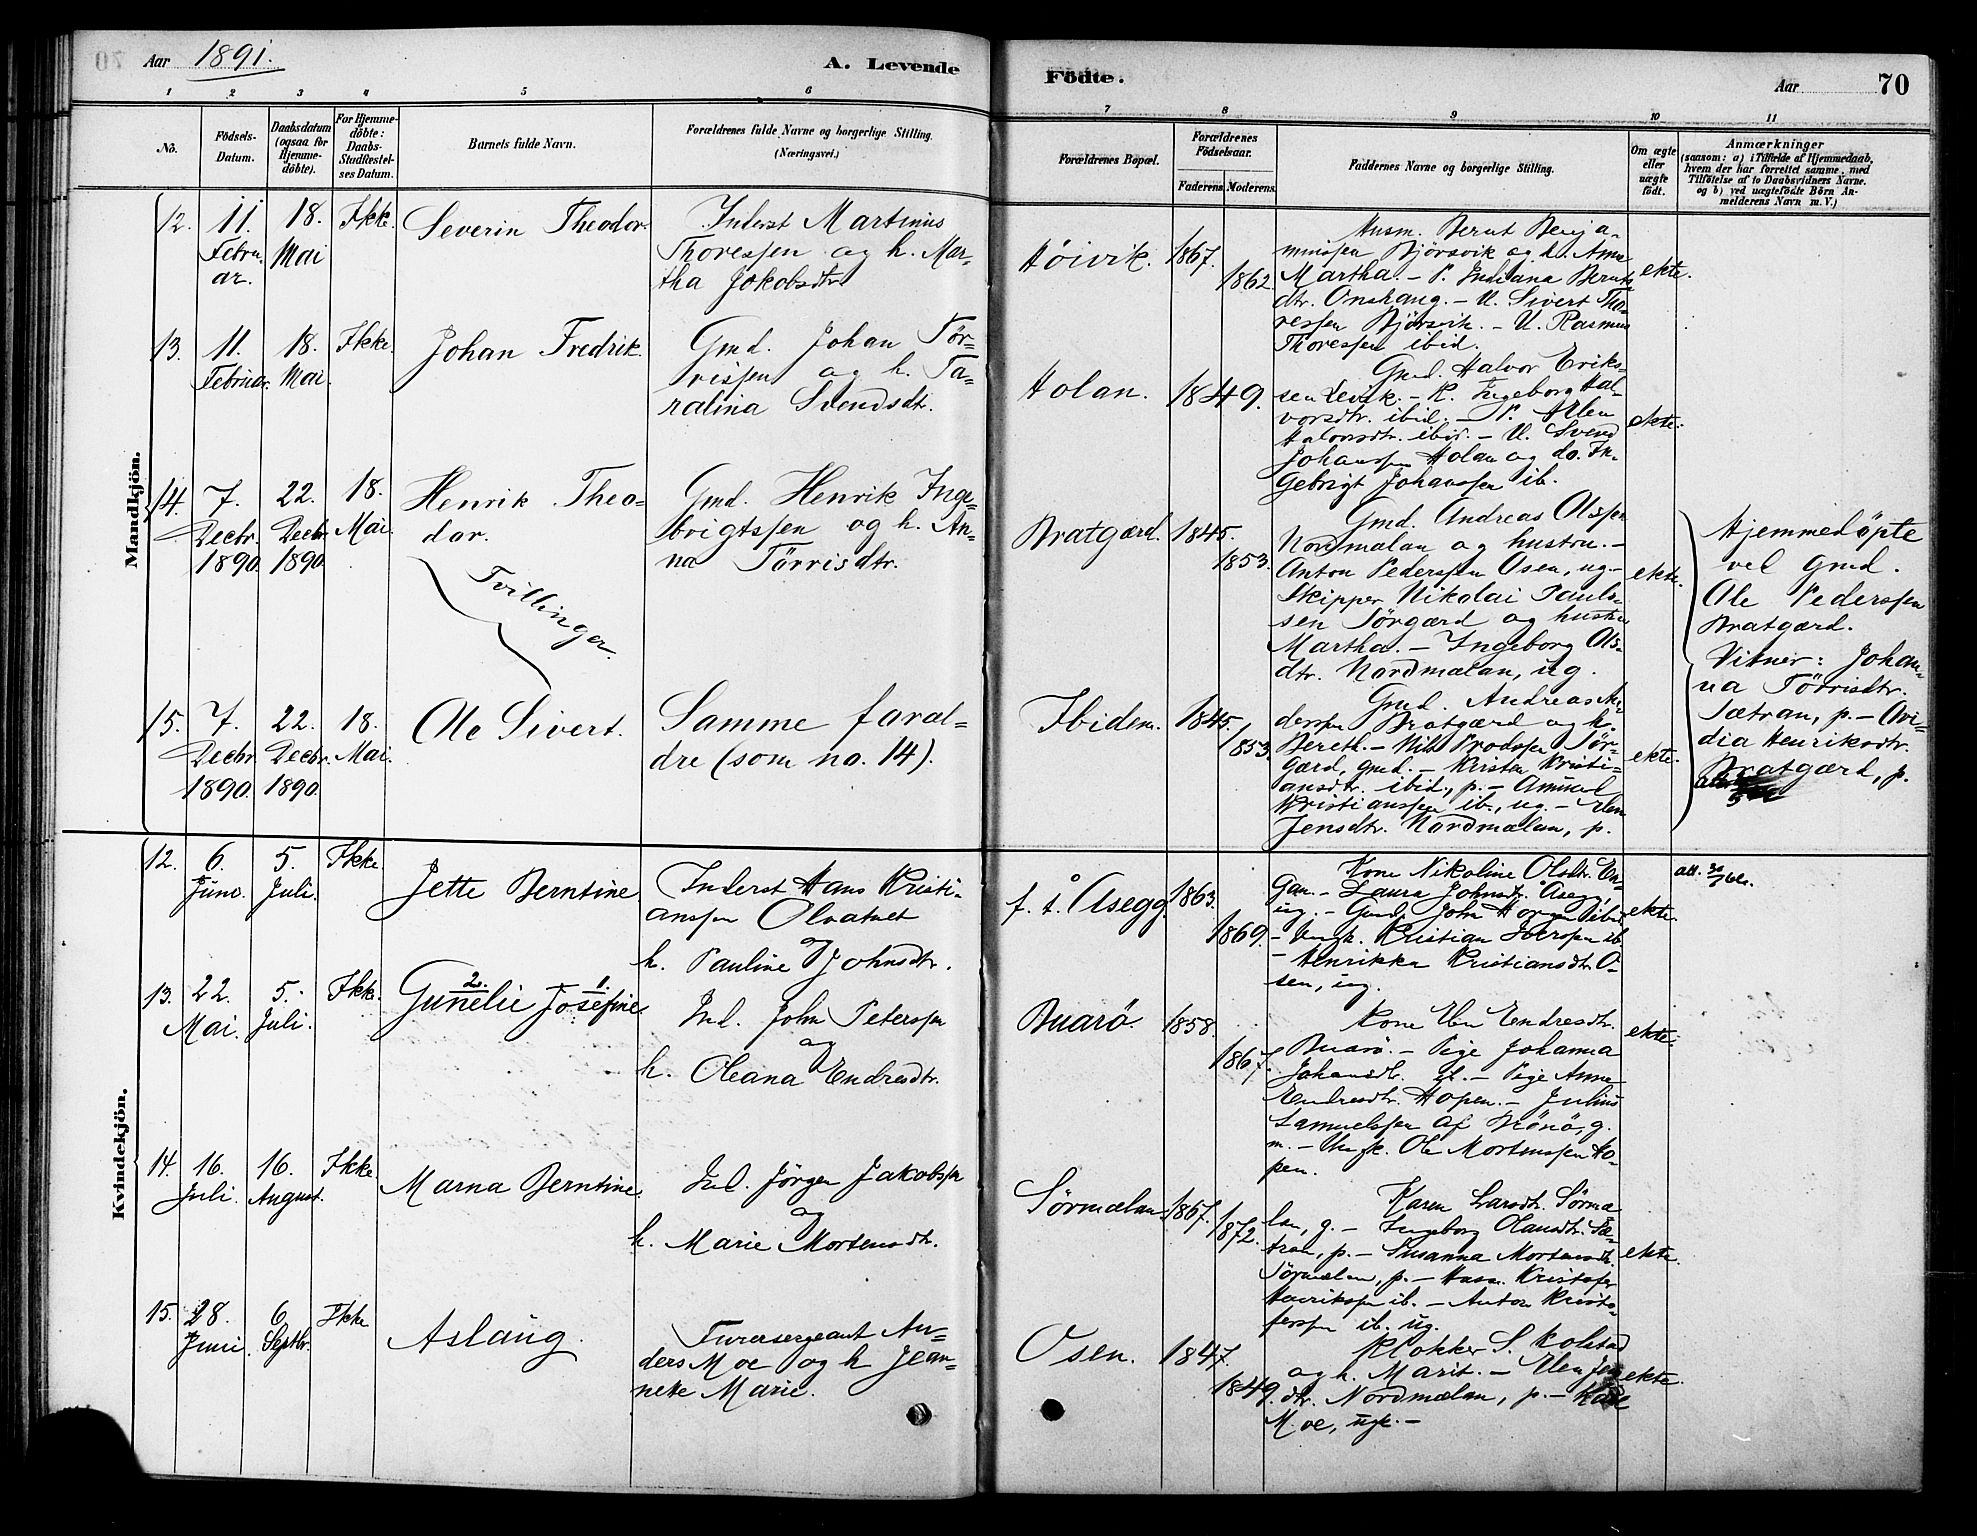 Aar 1891.
A. Levende
Födte.
Aar
70
1 2 3 4 5 6 7 8 9 10 11
No.
Födsels-
Datum.
Daabsdatum
(ogsaa for
Hjemme-
döbte).
For Hjemme-
döbte:
Daabs-
Stadfæstel-
ses Datum.
Barnets fulde Navn.
Forældrenes fulde Navne og borgerlige Stilling.
(Næringsvei.)
Forældrenes Bopæl.
Forældrenes
Födselsaar.
Faderens. Moderens.
Faddernes Navne og borgerlige Stilling.
Om ægte
eller
uægte
födt.
Anmærkninger
(saasom: a) i Tilfælde af Hjemmedaab,
hvem der har forrettet samme, med
Tilföielse af to Daabsvidners Navne.
og b) ved uægtefödte Börn An-
melderens Navn m. V.)
Mandkjön.
12.
11.
Febru-
ar.
18.
Mai
Ikke.
Severin Theodor.
Inderst Martinus
Thoressen og h. Mar-
tha Jakobsdtr.
Höivik.
1867.
1862
Husm. Bernt Benja-
minssen Björsvik og h. Anne
Martha. - P. Indiana Bernts-
dtr. Onshaug. - U. Sivert Tho-
ressen Björsvik. - U. Rasmus
Thoressen ibid.
ekte.
13.
11.
Februar.
18.
Mai.
Ikke.
Johan Fredrik.
Gmd. Johan Tör-
rissen og h. Ta-
ralina Svendsdt.
Holan.
1849.
Gmd. Halvor Eriks-
sen Levik. - K. Ingeborg Hal-
vorsdtr. ibid. - P. Ellen
Halvorsdtr. ibid. - U. Svend
Johanssen Holan og do. In-
gebrigt Johanssen ib.
ekte.
14.
7.
Decbr.
1890.
22.
Decbr.
1890.
18.
Mai.
Henrik Theo-
dor.
Tvillinger.
Gmd. Henrik Inge-
brigtssen og h. An-
na Törrisdtr.
Bratgærd.
1845.
1853.
Gmd. Andreas Olssen
Nordmælan og hustru. -
Anton Pederssen Osen, ug. -
Skipper Nikolai Pauls-
sen Sörgærd og hustru
Martha. - Ingeborg Ols-
dtr. Nordmælan, ug.
ekte.
Hjemmedöpte
ved Gmd.
Ole Pederssen
Bratgærd.
Vitner: Johan-
na Törrisdtr.
Sætran, p. - Ovi-
dia Henriksdtr.
Bratgærd, p.
15.
7.
Decbr.
1890.
22.
Decbr.
1890.
18.
Mai.
Ole Sivert.
Samme foræl-
dre (som no. 14).
Ibidem.
1845.
1853.
Gmd. Andreas An-
derssen Bratgærd og h.
Bereth. - Nils Brodssen Sör-
gærd, gmd. - Kristen Kristi-
ansdtr. ibid., p. - Amund
Kristianssen ib., ug. - Elen
Jensdtr. Nordmælan, p.
ekte.
Kvindekjön.
12.
6.
Juni.
5.
Juli.
Ikke
Jette Berntine
Inderst Hans Kristi-
anssen Olvatnet
og
h. Pauline Johnsdtr.
f. t. Åsegg.
1863.
1869.
Kone Nikoline Olsdtr. En-
gan. - Laura Johnsdtr. Åsegg,
ug. - Gmd. John Horgen ibid.
- Ungk. Kristian Iverssen ib.
- Henrikka Kristiansdtr. O-
sen, ug.
ekte.
13.
22.
Mai.
5.
Juli.
Ikke.
2. 1.
Gunelie Josefine
Ind. John Peterssen
og
h. Oleana Endresdtr.
Buarö.
1858.
1867.
Kone Elen Endresdtr.
Buarö. - Pige Johanna
Johansdtr. ib. - Pige Anne
Endresdtr. Hopen. - Julius
Samuelssen af Brönö, g.
m. - Ungk. Ole Mortenssen Ho-
pen.
ekte.
14.
16.
Juli.
16.
August.
Ikke
Marna Berntine.
Ind. Jörgen Jakobssen
og
h. Marie Mortensdtr.
Sörmælan.
1867.
1872.
Karen Larsdtr. Sörmæ-
lan, g. - Ingeborg Olausdtr. Sæ-
tran, p. - Susanna Mortensdtr.
Sörmælan, p. - Husm. Kristofer
Henrikssen ib. - Anton Kristo-
ferssen ib. ug.
ekte
15.
28.
Juni.
6.
Septbr.
Ikke
Aslaug.
Furersergeant An-
ders Moe og h. Jean-
nete Marie.
Osen.
1847.
1849.
Klokker S. Kolstad
og h. Marit. - Elen Jens-
dtr. Nordmælan, p. -
Moe, ugk. -
ekte.